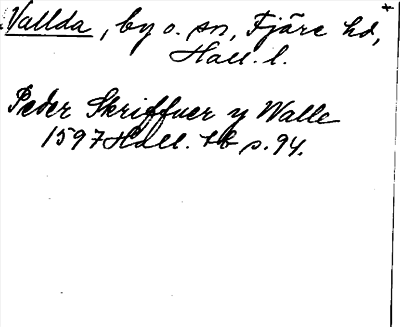 Vallda, by o. sn, Fjäre hd,
Hall. l.
Peder Skriffuer y Walle
1597 Hall. tb s. 94.